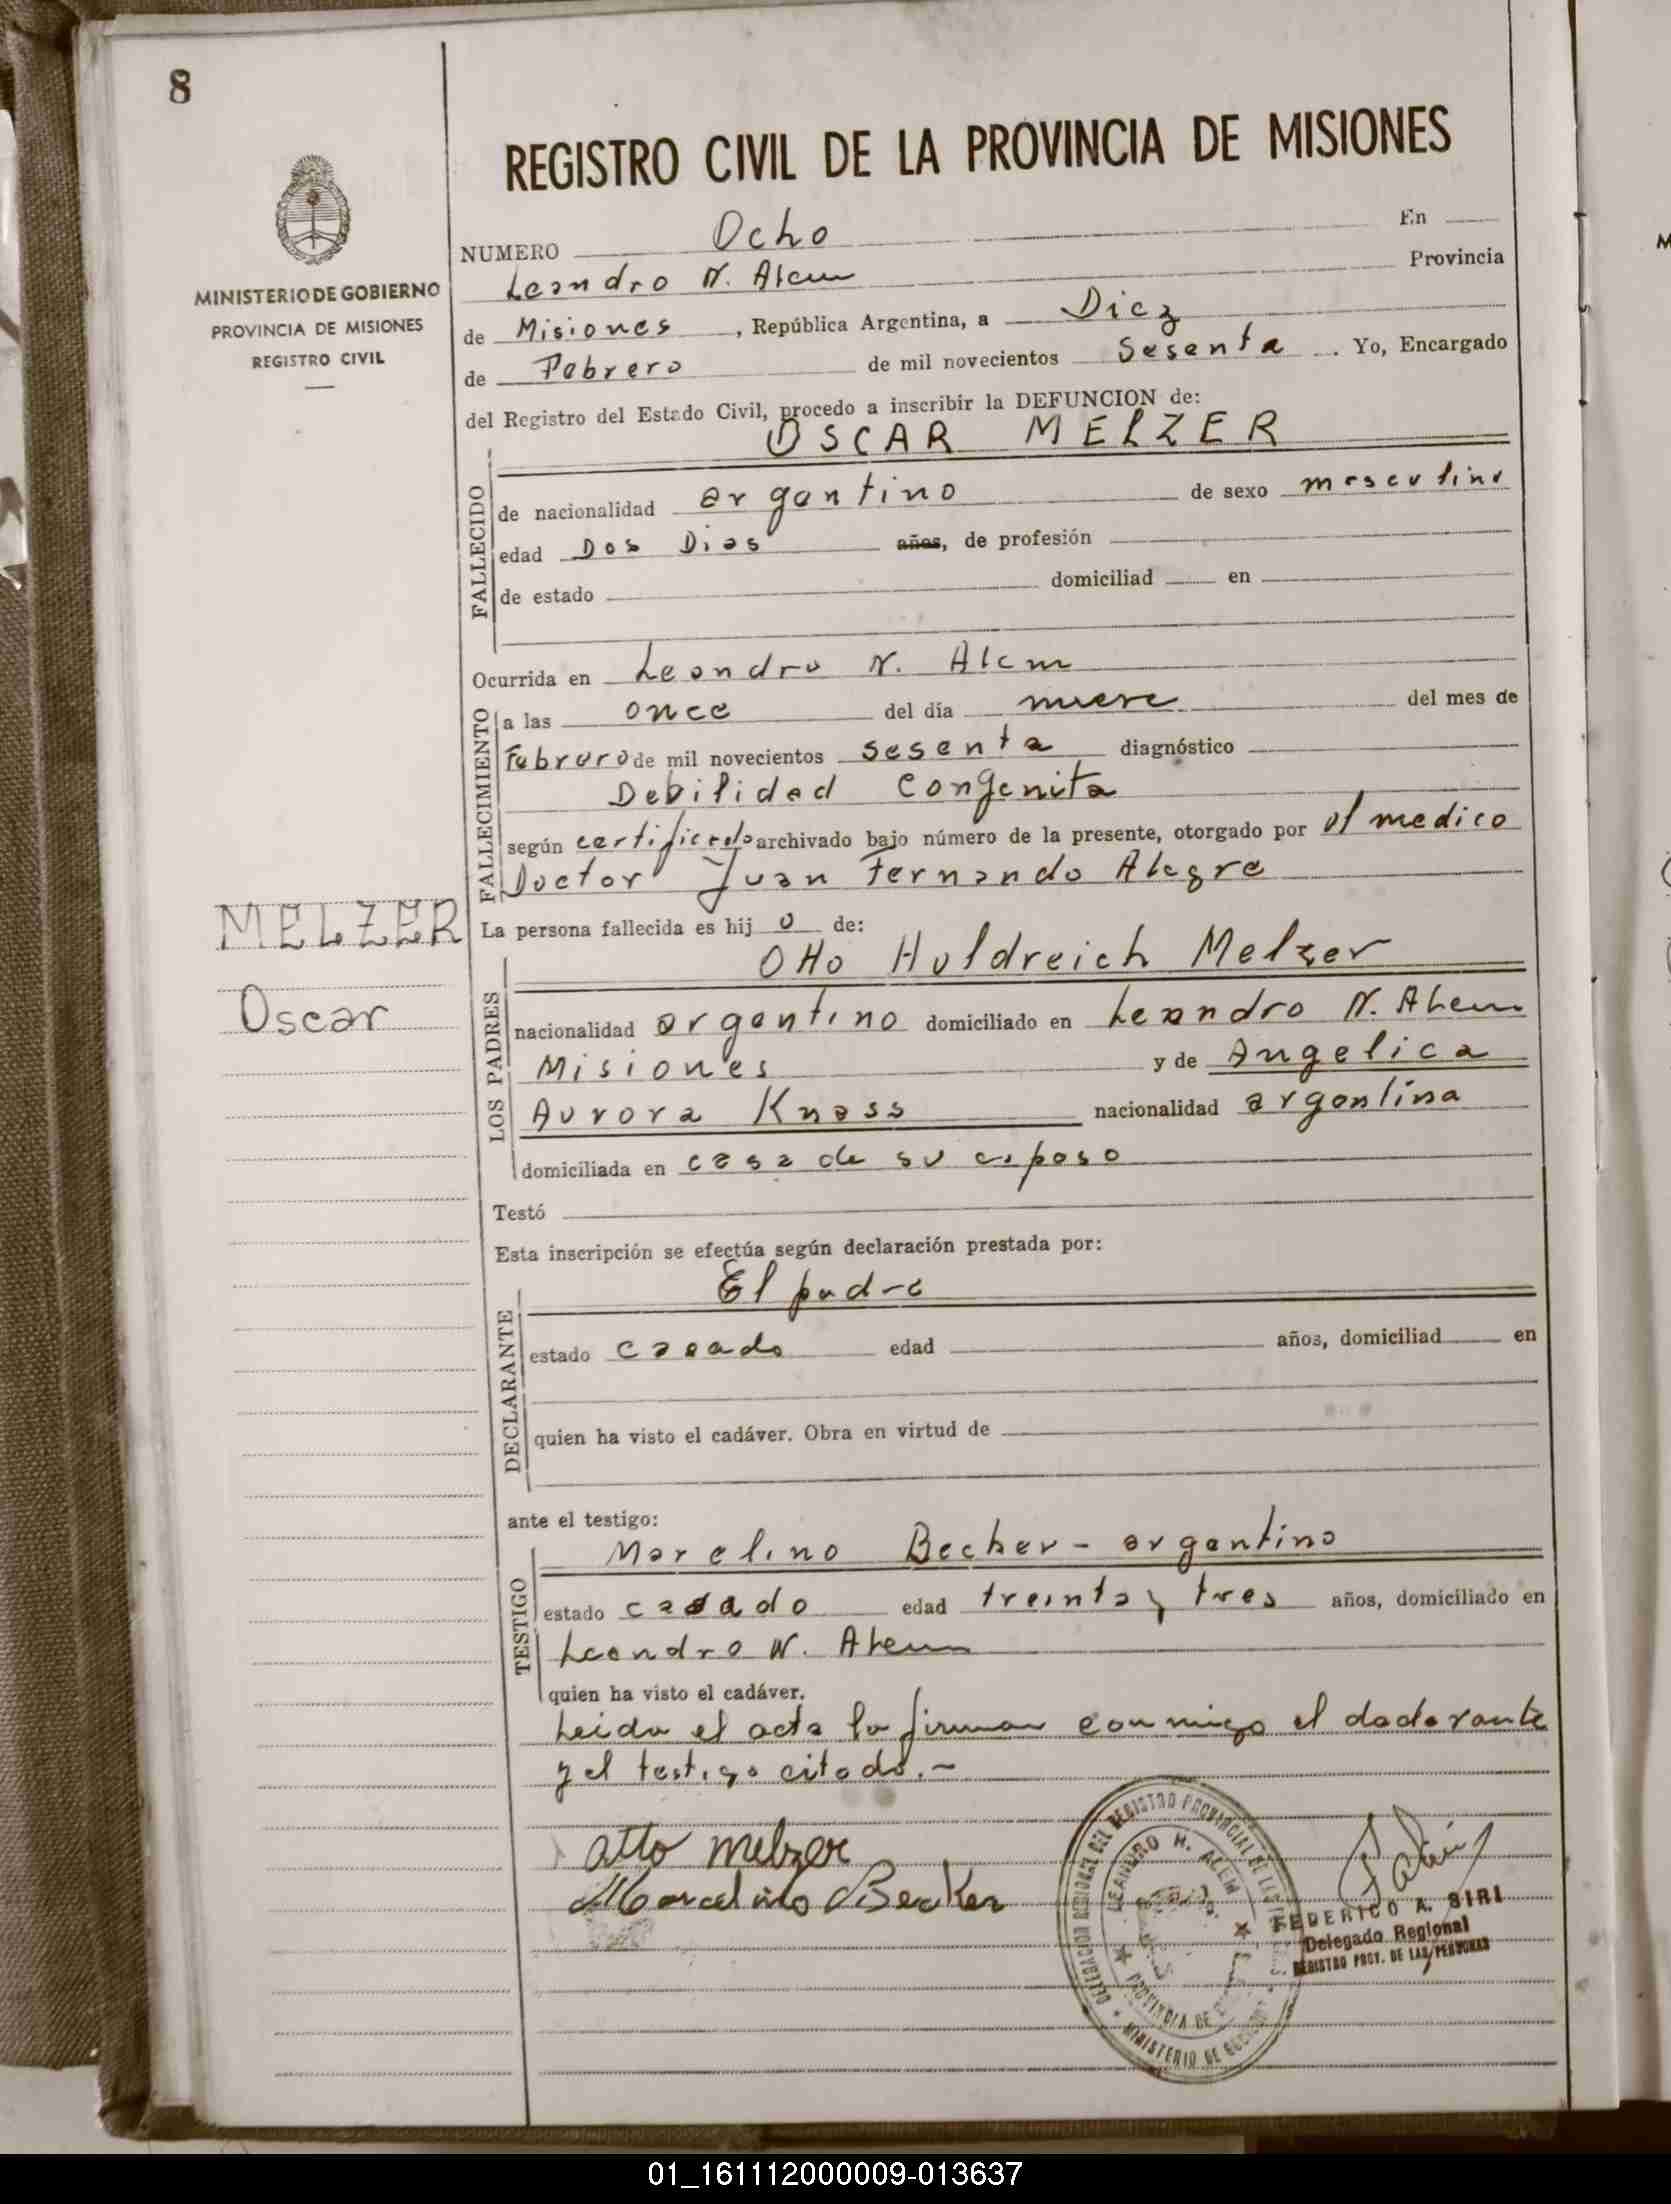 8
MINISTERIO DE GOBIERNO
PROVINCIA DE MISIONES
REGISTRO CIVIL
REGISTRO CIVIL DE LA PROVINCIA DE MISIONES
NUMERO Ocho En
Leandro N. Alem Provincia
de Misiones, República Argentina, a Diez
de Febrero de mil novecientos Sesenta. Yo, Encargado
del Registro del Estado Civil, procedo a inscribir la DEFUNCION de:
OSCAR MELZER
FALLECIDO
de nacionalidad argentino de sexo masculino
edad Dos Dias años, de profesión
de estado domiciliad en
Ocurrida en Leandro N. Alem
FALLECIMIENTO
a las once del día nueve del mes de
Febrero de mil novecientos sesenta diagnóstico
Debilidad Congenita
según certificado archivado bajo número de la presente, otorgado por el medico
Doctor Juan Fernando Alegre
MELZER
Oscar
La persona fallecida es hijo de:
LOS PADRES
Otto Huldreich Melzer
nacionalidad argentino domiciliado en Leandro N. Alem
Misiones y de Angelica
Aurora Knass nacionalidad argentina
domiciliada en casa de su esposo
Testó
Esta inscripción se efectúa según declaración prestada por:
DECLARANTE
El padre
estado casado edad años, domiciliad en
quien ha visto el cadáver. Obra en virtud de
ante el testigo:
TESTIGO
Marcelino Becher - argentino
estado casado edad treinta y tres años, domiciliado en
Leandro N. Alem
quien ha visto el cadáver.
Leida el acta la firman conmigo el declarante
y el testigo citado.-
Otto Melzer
Marcelino Becker
DELEGACION REGIONAL DEL REGISTRO PROVINCIAL DE LAS
LEANDRO N. ALEM
PROVINCIA DE
MINISTERIO DE GOBIERNO
FEDERICO A. SIRI
Delegado Regional
REGISTRO PROV. DE LAS PERSONAS
01_161112000009-013637